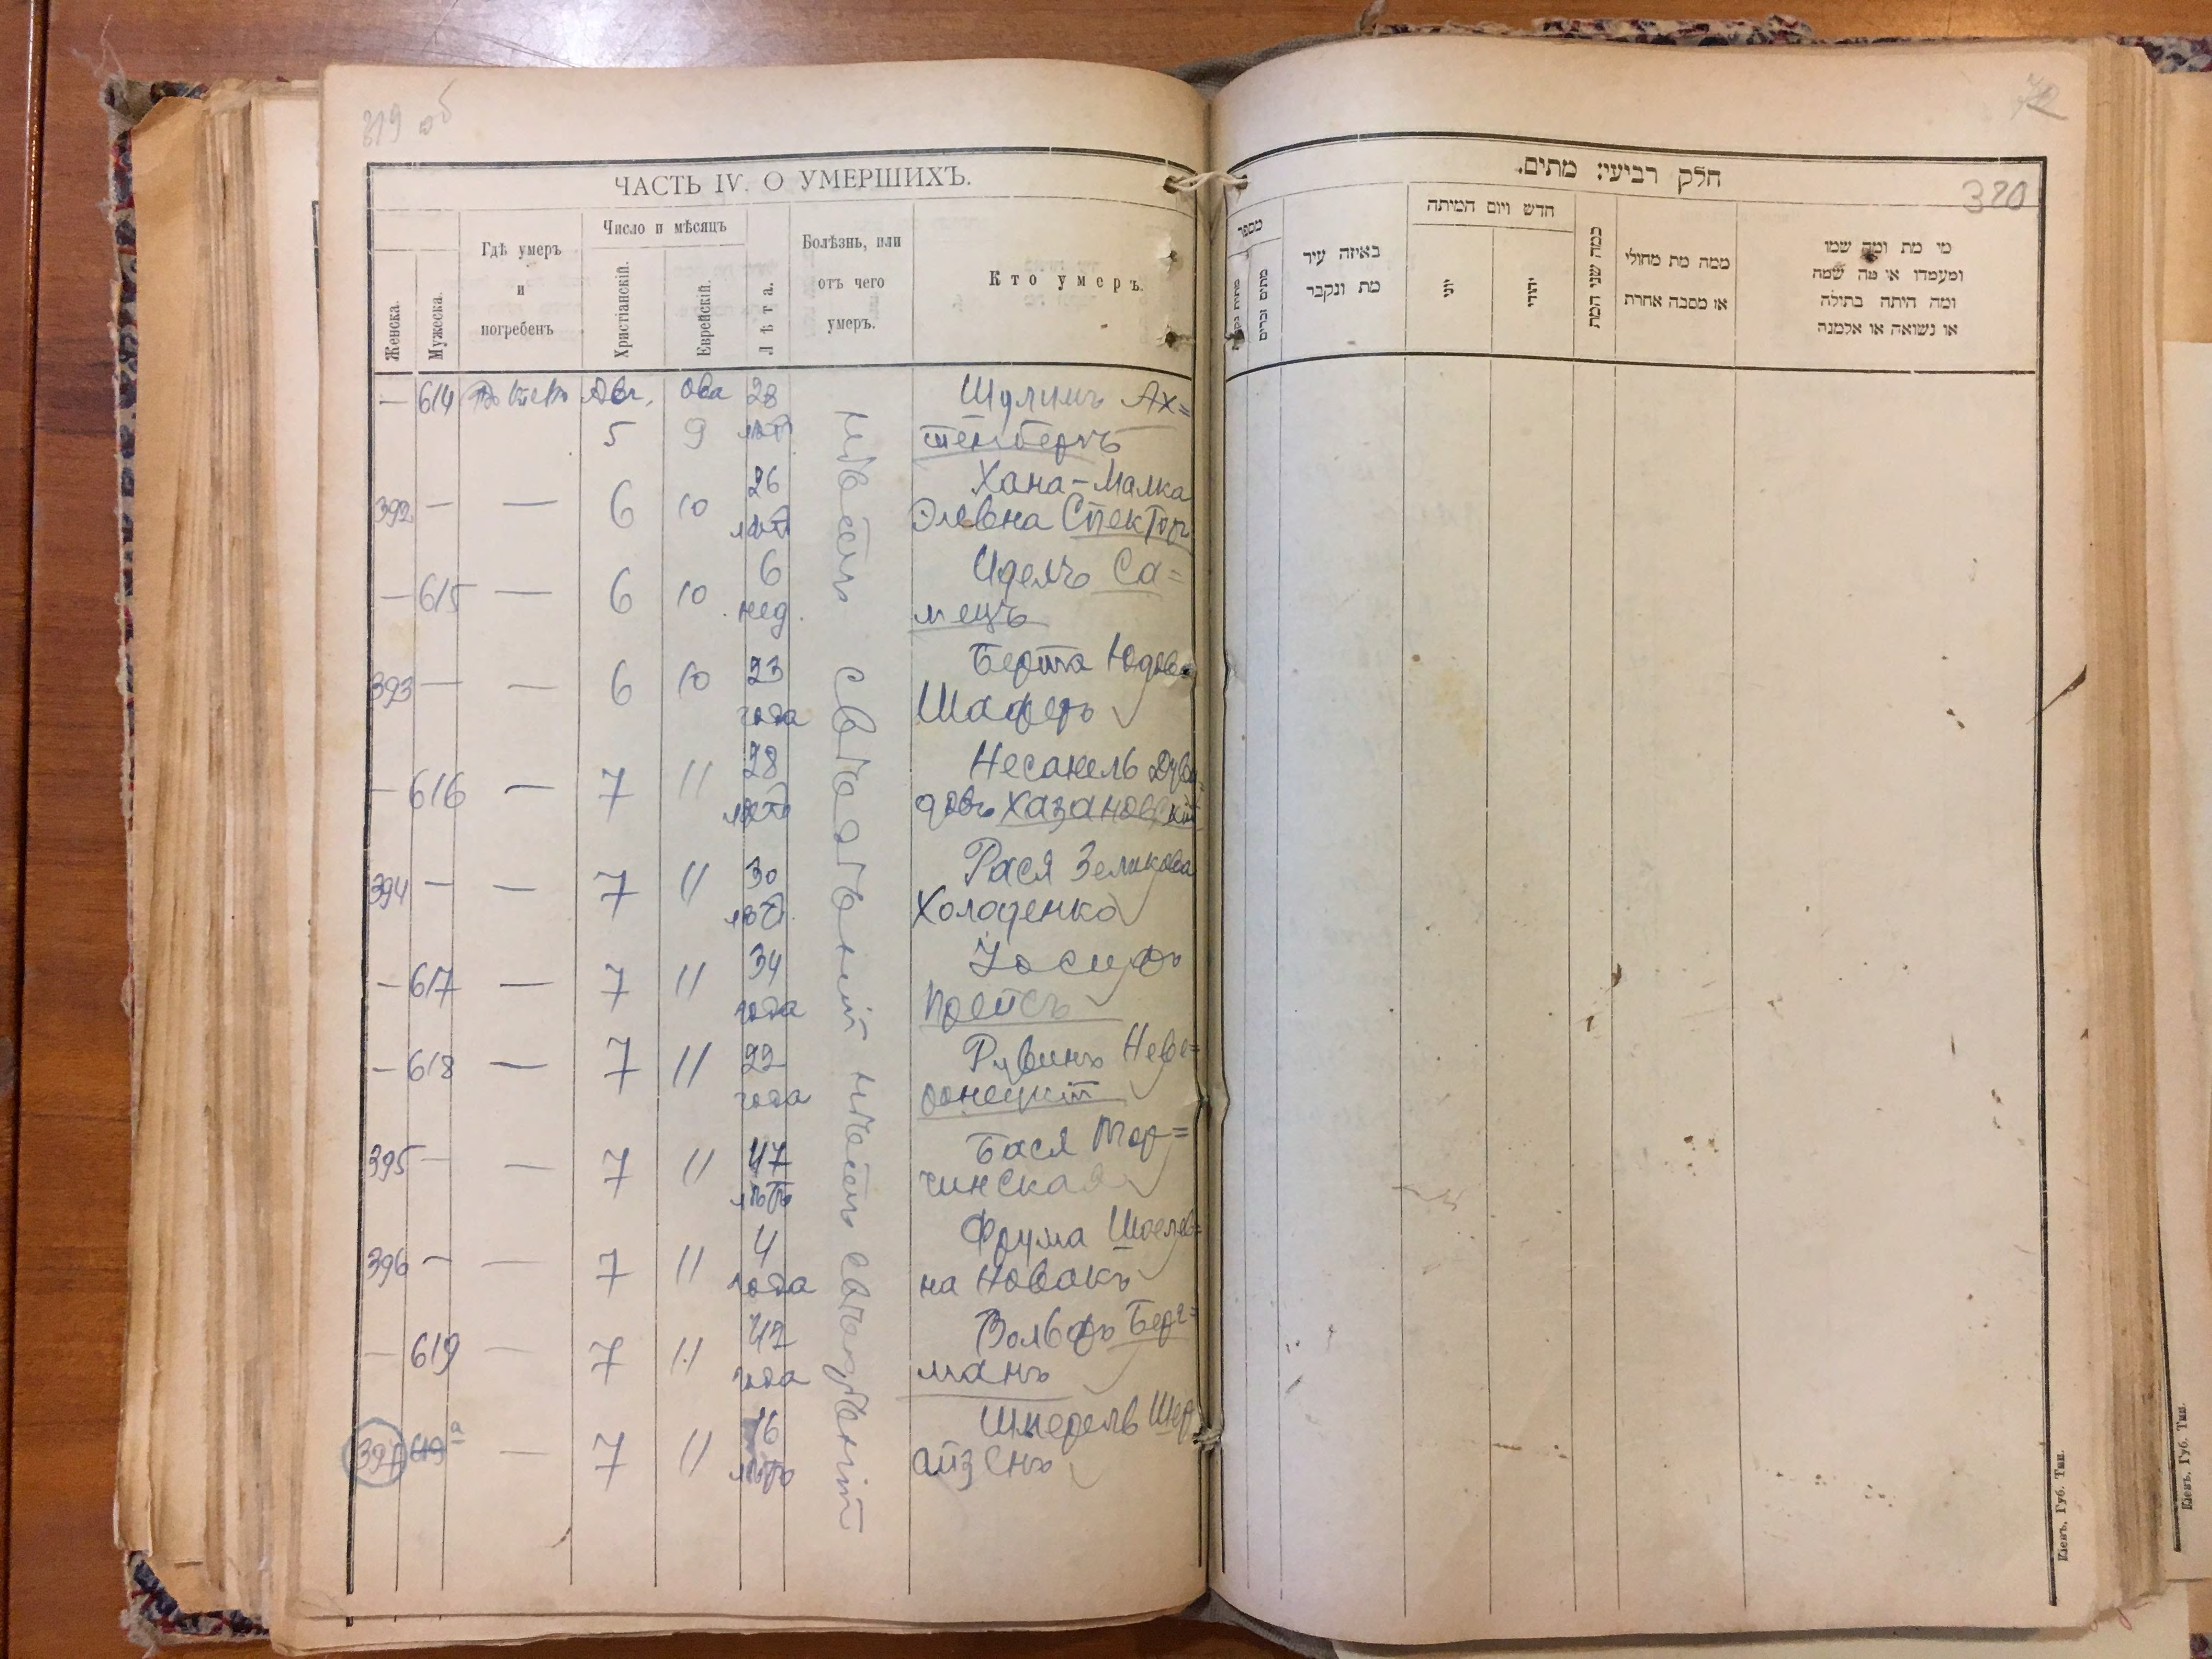 319 об
ЧАСТЬ IV. О УМЕРШИХЪ.
Женска.
Мужеска.
Гдѣ умеръ
и
погребенъ
Число и мѣсяцъ
Христіанскій.
Еврейскій.
Лѣта.
Болѣзнь, или
отъ чего
умеръ.
Кто умеръ.
— 614 Авг. Ова 28 Шулимъ Ах=
5 9 лѣтъ тенбергъ
392 — — 6 10 26 Хана-Малка
лѣтъ Элевна Спекторъ
— 615 — 6 10 6 Идель Са=
нед. мецъ
393 — — 6 10 23 Берта Юдова
года Шаферъ
— 616 — 7 11 28 Несанель
лѣтъ довъ Хазановскій
394 — — 7 11 30 Рася Зеликова
лѣтъ Холоденко
— 617 — 7 11 34 Іосифъ
года Прейсъ
— 618 — 7 11 22 Рувинъ Неве=
года
395 — — 7 11 47 Бася
лѣтъ чинская
396 — — 7 11 4 Фрума Шоелев=
года на Новакъ
— 619 — 7 11 42 Вольфъ Берг=
года манъ
397 619а — 7 11 16
лѣтъ айзенъ
нѣтъ свѣдѣній нѣтъ свѣдѣній
חלק רביעי: מתים.
320
מספר
מתים זכרים
באיזה עיר
מת ונקבר
חדש ויום המיתה
יוני
יהודי
כמה שני המת
ממה מת מחולי
או מסבה אחרת
מי מת ומה שמו
ומעמדו או מה שמה
ומה היתה בתולה
או נשואה או אלמנה
Кіевъ, Губ. Тип.
Кіевъ, Губ. Тип.